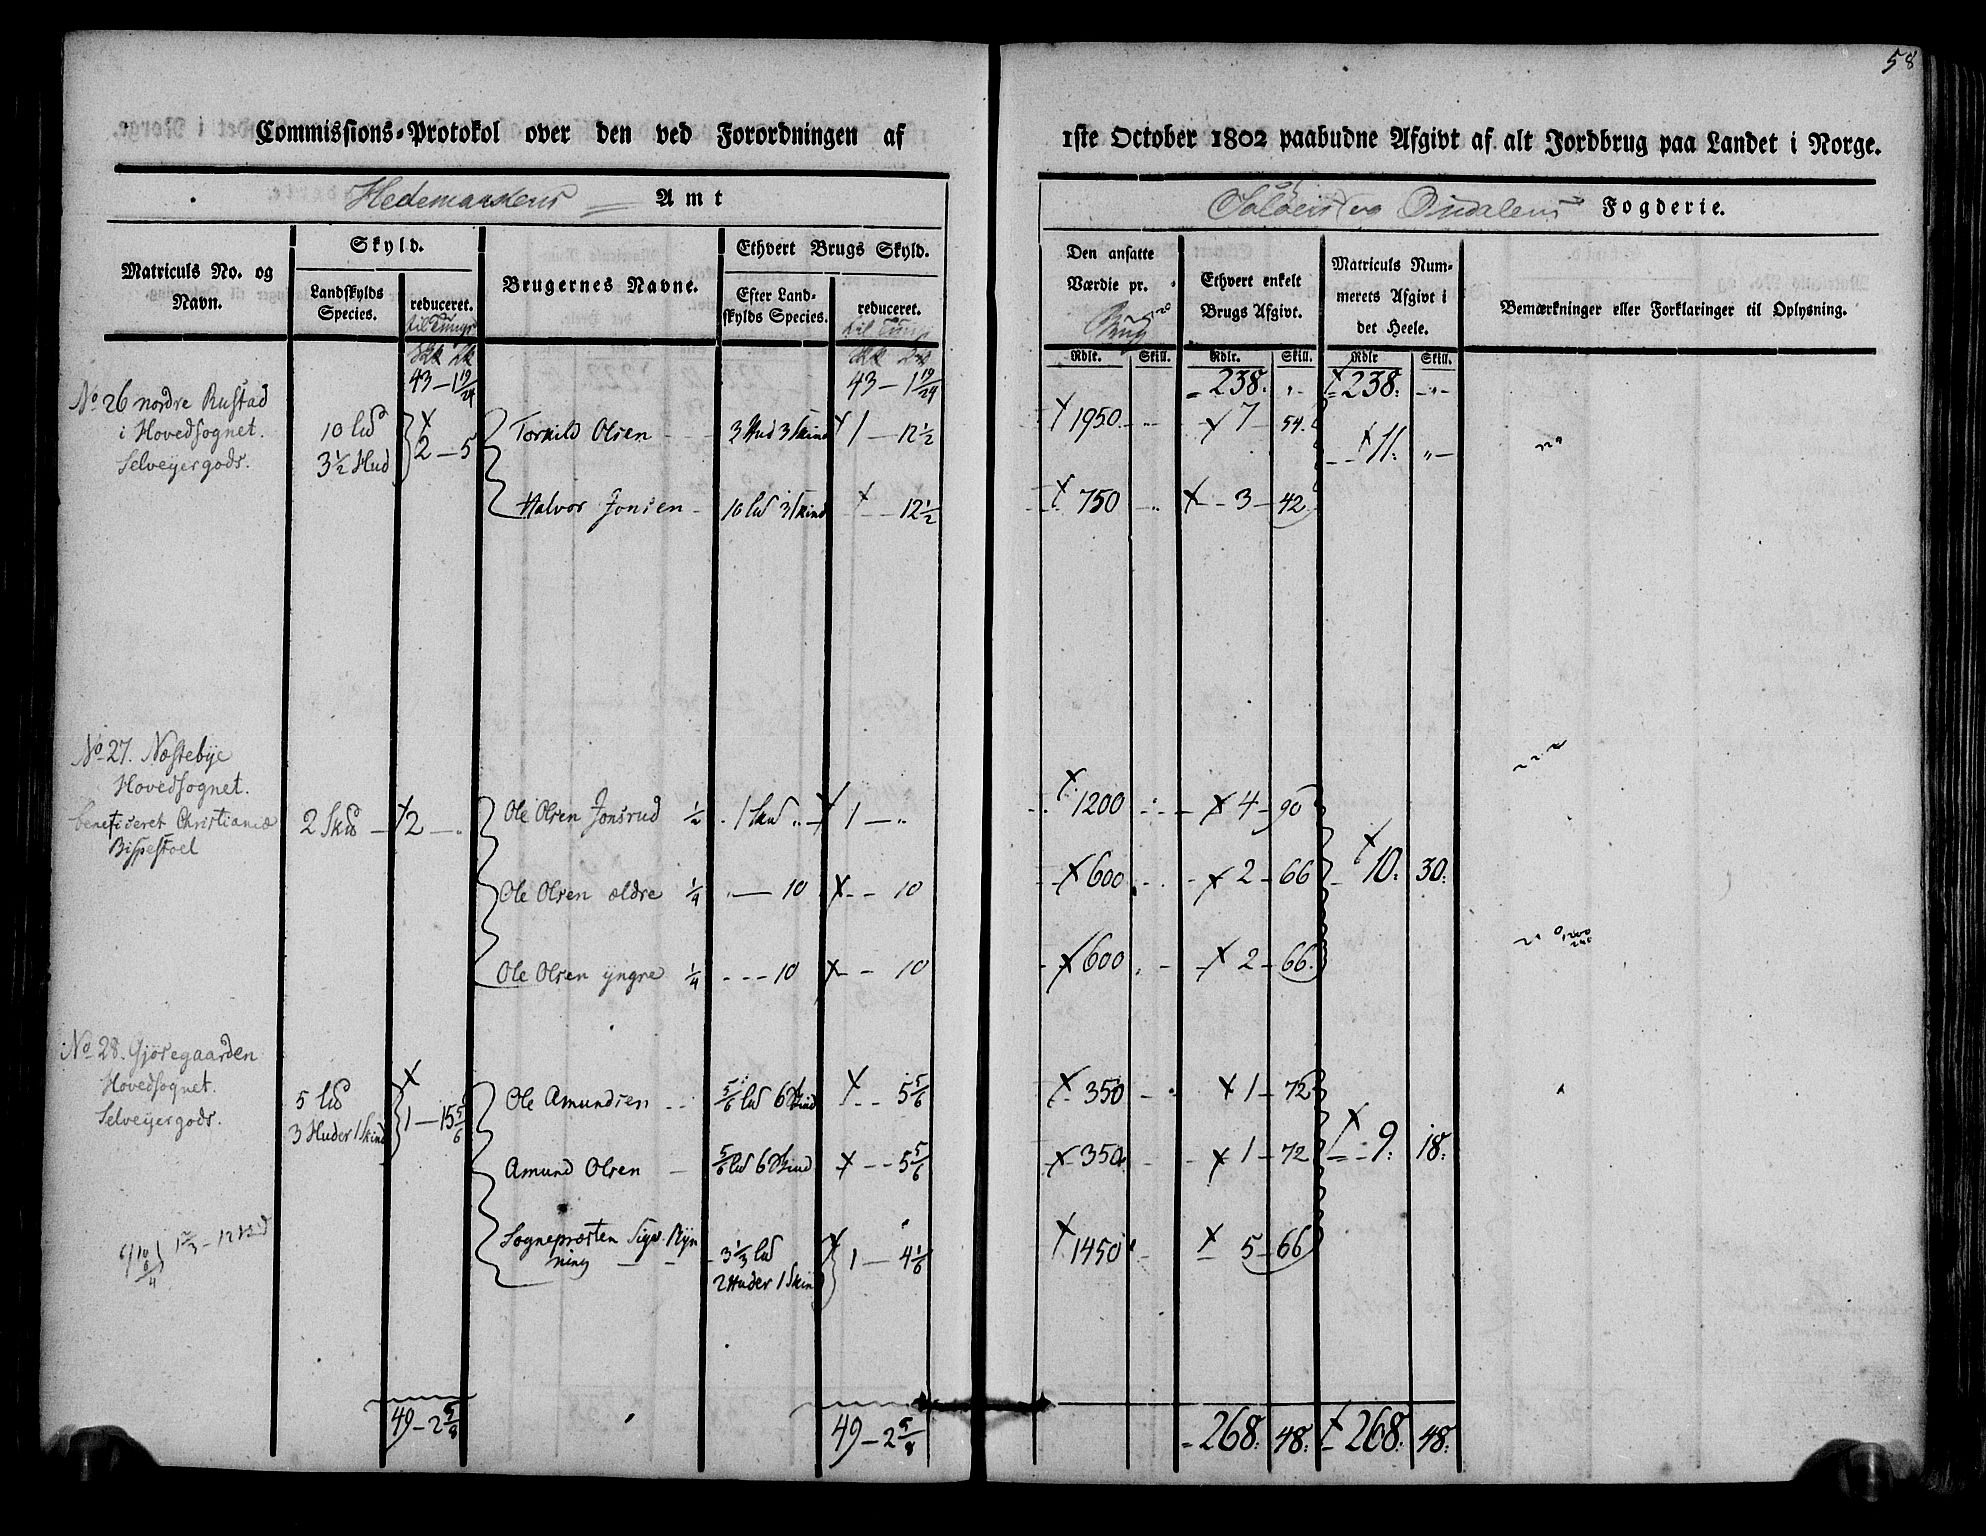 58
Commissions-Protokol over den ved Forordningen af 1ste October 1802 paabudne Afgivt af alt Jordbrug paa Landet i Norge.
Hedemarkens Amt
Soløers og Odalens Fogderie.
Matriculs No. og Navn.
Skyld.
Landskylds Species.
reduceret.
til Tunge
Brugernes Navne.
Ethvert Brugs Skyld.
Efter Landskylds Species.
reduceret.
til Tung
Den ansatte Værdie pr. Brug
Ethvert enkelt Brugs Afgivt.
Matriculs Nummerets Afgivt i det Heele.
Bemærkninger eller Forklaringer til Oplysning.
Rdlr. Skill. Rdlr. Skill. Rdlr Skill.
43 – 1 19/24 43 – 1 19/24 238. „ 238: „
No 26 nordre Rustad
i Hovedsognet.
Selveÿergods.
10 lid
3½ Hud
2 – 5
Torkild Olsen 3 Hud 3 Skind 1 – 12½ 1950 7 54. 11: „
Halvor Jonsen 10 lid 3 Skind 12½ 750 3 – 42
No 27. Næstebÿe
Hovedsognet.
beneficeret Christianiæ
Bispestoel
2 Skd 2 –
Ole Olsen Jonsrud ½ 1 Skd 1 – „ 1200 4 – 90
Ole Olsen ældre ¼ 10 10 600 2 – 66 10: 30:
Ole Olsen ÿngre ¼ 10 10 600 2 – 66.
No 28. Gjøsegaarden
Hovedsognet.
Selveÿergods.
5 lid
3 Huder 1 Skind
1 – 15 5/6
Ole Amundsen 5/6 lid 6 Skind 5 5/6 350 1 – 72
Amund Olsen 5/6 lid 6 Skind 5 5/6 350 1 – 72 9: 18:
Sognepræsten Sigv. Rÿnning 3⅓ lid
2 Huder 1 Skin
1 – 4 1/6 1450 5 – 66
49 – 2 5/8 49 – 2 5/8 268. 48: 268: 48: